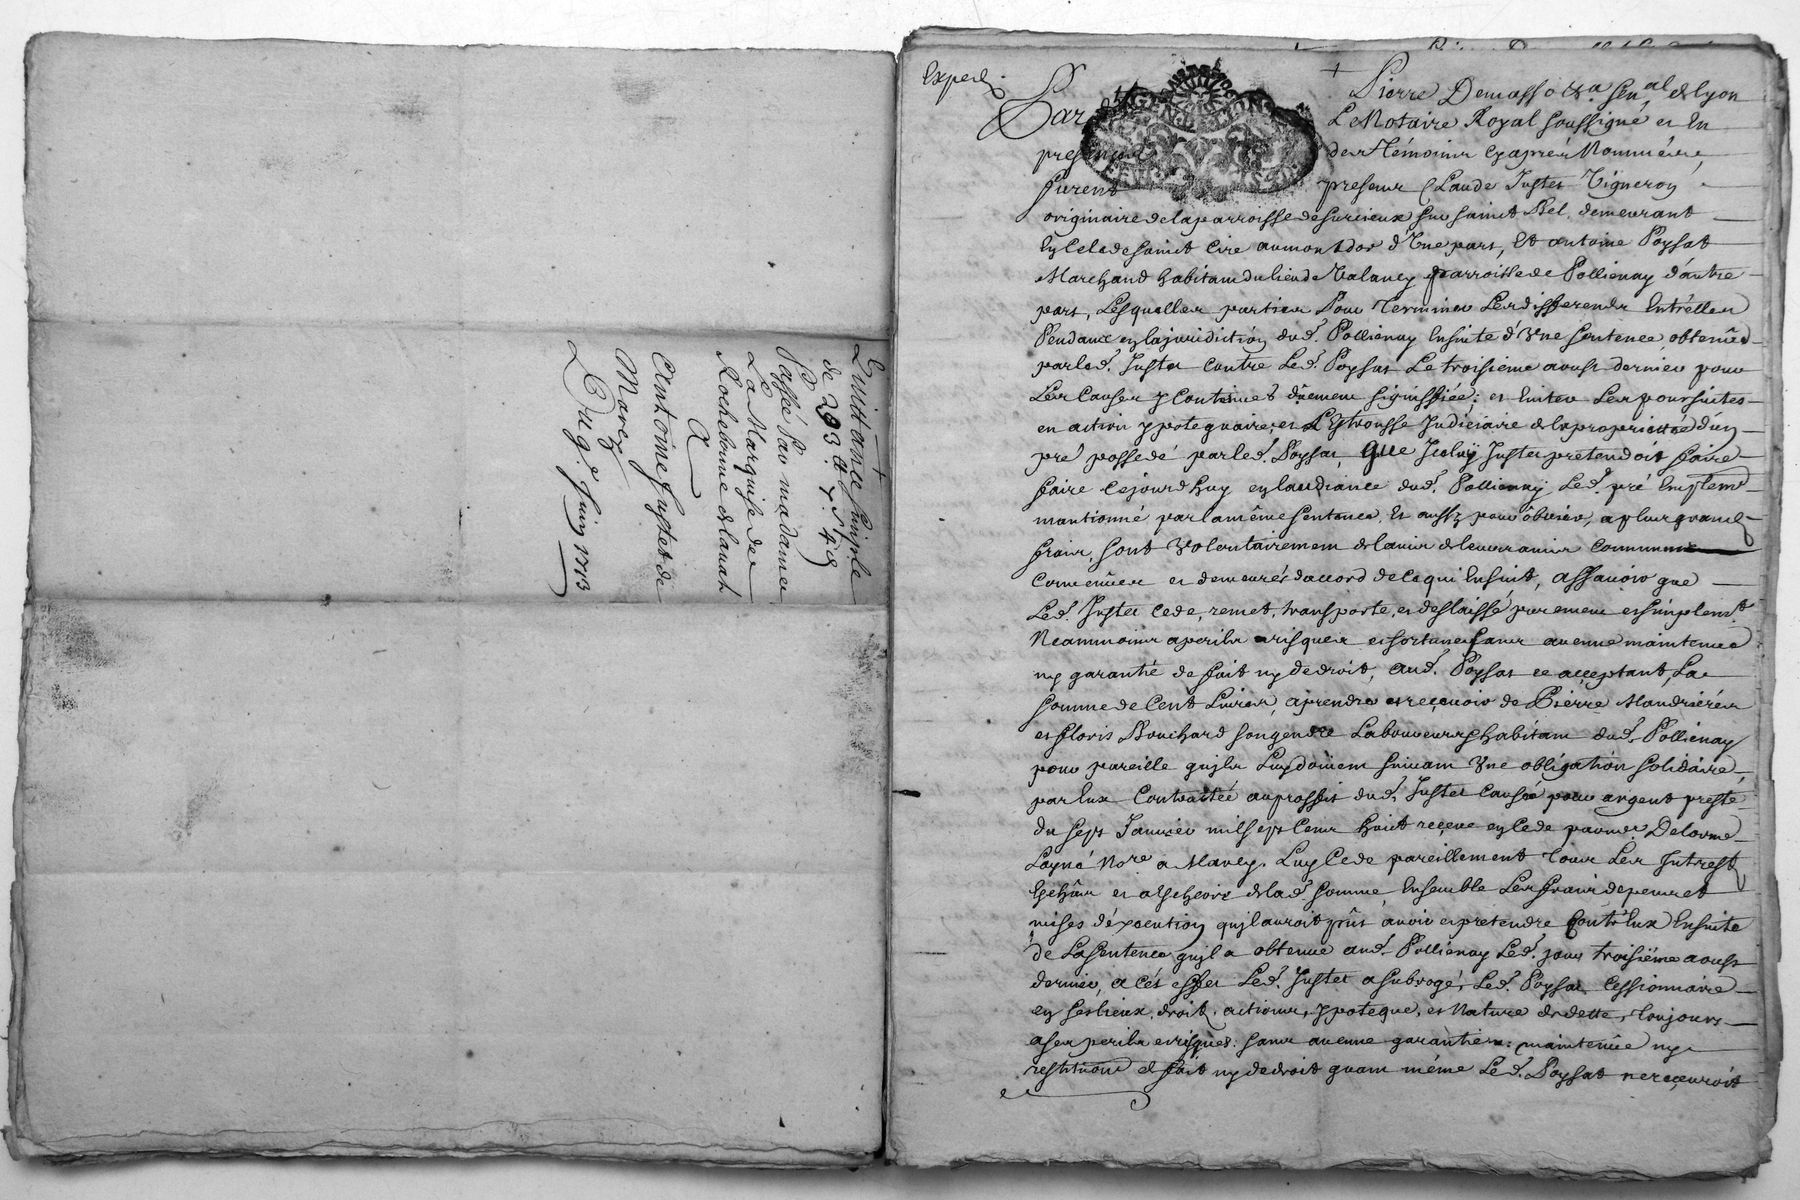 Quittance simple
de 293 ₶ 7 s 4 d
Passée par madame
La Marquise de
Rochebonne
A
Antoine Juster de
Marcy
Du 9e Juin 1713
Exped.
Pierre Demasso &a senal de Lyon
Par
Le Notaire Royal soussigné et En
presence
des témoins cy apres Nommées,
furent
presens Claude Juster Vigneron
originaire de la parroisse de Surcieux sur sainct Bel, demeurant
En celle de sainct Cire au mont dor d'Une part, Et antoine Poysat
Marchand habitant du lieu de Valancy parroisse de Pollienay d'autre
part, Lesquelles parties Pour Terminer Les differendz Entr'elles
Pendant en la juridiction dud. Pollienay Ensuite d'Une sentence obtenüe
par led. Juster contre Led. Poysat Le troisieme aoust dernier pour
Les causes y Contenues düement signiffiée; et Eviter Les poursuites
en action ypotequaire, et L'Estrousse Judiciaire de la proprieté d'un
pré possedé par led. Poysat, que Jceluy Juster pretendoit faire
faire cejourdhuy en laudiance dud. Pollienay Led. pré Emplemt
mantionné par la même sentence, Et aussy pour obvier, a plus grands
fraix, sont Volontairement de lavis de leurs amis communs
convenües et demeurés daccord de ce qui Ensuit, assavoir que
Led. Juster cede, remet, transporte, et deslaisse purement et simplemt
Neammoins a perils risques et fortunes sans aucune maintenue
ny garantie de fait ny de droit, aud. Poysat ce acceptant, La
somme de Cent Livres, a prendre et recevoir de Pierre Mandrieres
et floris Bouchard son gendre Laboureurs habitans dud. Pollienay
pour pareille qu'jls Luy doivent suivant Une obligation solidaire
par Eux Contractée au proffit dud. Juster causée pour argent presté
du sept Janvier mil sept cent huit reçeue par me Delorme
Layné Nore a Marcy. Luy Cede pareillement Tous Les Jntrest
Escheus et a Escheoir de lad. somme, Ensemble Les fraix depens et
mises d'éxecution qu'jl auroit pûs avoir et pretendre Contr'Eux Ensuite
de La sentence qu'jl a obtenue aud. Pollienay Led. jour troisième aoust
dernier, a cét effet Led. Juster a subrogé, Led. Poysat Cessionnaire
en ses lieux, droit, actions, ypoteque, et Nature de dette, toujours
a ses perils et risques, sans aucune garantie, maintenüe ny
restitution de fait ny de droit quam même Led. Poysat ne recevroit